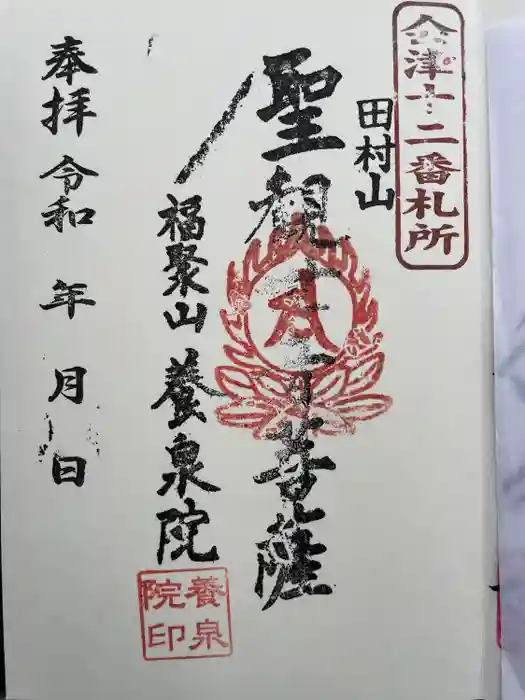 会津十二番札所
田村山
聖観世音菩薩
福聚山 養泉院
養泉院印
奉拝 令和 年 月 日